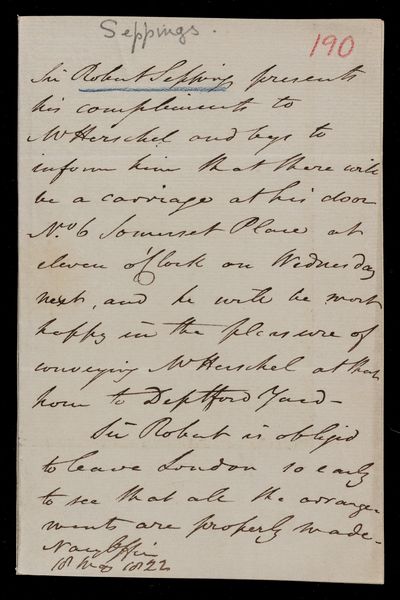 Seppings.
190
Sir Robert Seppings presents
his compliments to
Mr Herschel and begs to
inform him that there will
be a carriage at his door
No 6 Somerset Place at
eleven o'Clock on Wednesday
next, and he will be most
happy in the pleasure of
conveying Mr Herschel at that
hour to Deptford Yard—
Sir Robert is obliged
to leave London so early
to see that all the arrange
ments are properly made—
Navy Office
18 1822